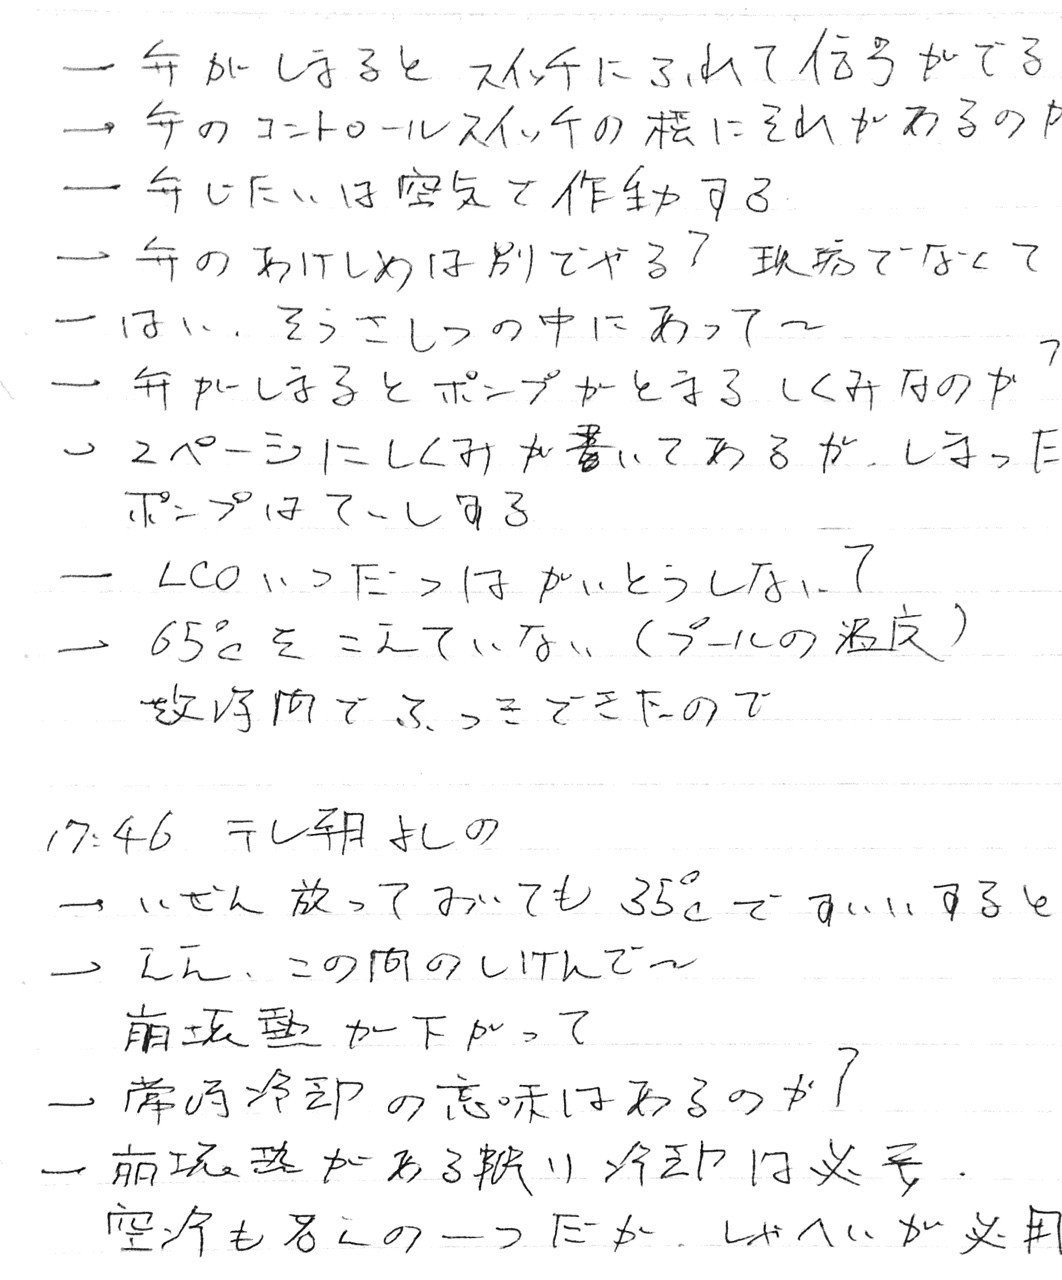 ― 弁がしまると スイッチにふれて信号がでる
→ 弁のコントロールスイッチの横にそれがあるのか
― 弁じたいは空気で作動する
― 弁のあけしめは別でやる? 現場でなくて
― はい、そうさしつの中にあって〜
― 弁がしまるとポンプがとまるしくみなのか?
→ 2ページにしくみが書いてあるが、しまった
ポンプはてーしする
― LCOいつだつはがいとうしない?
→ 65℃をこえていない(プールの温度)
数時間でふっきできたので
17:46 テレ朝よしの
→ いぜん放っておいても 35℃ですいいすると
→ ええ、この間のしけんで〜
崩壊熱が下がって
→ 常時冷却の意味はあるのか?
― 崩壊熱がある限り冷却は必要.
空冷も考えの一つだが、しゃへいが必用